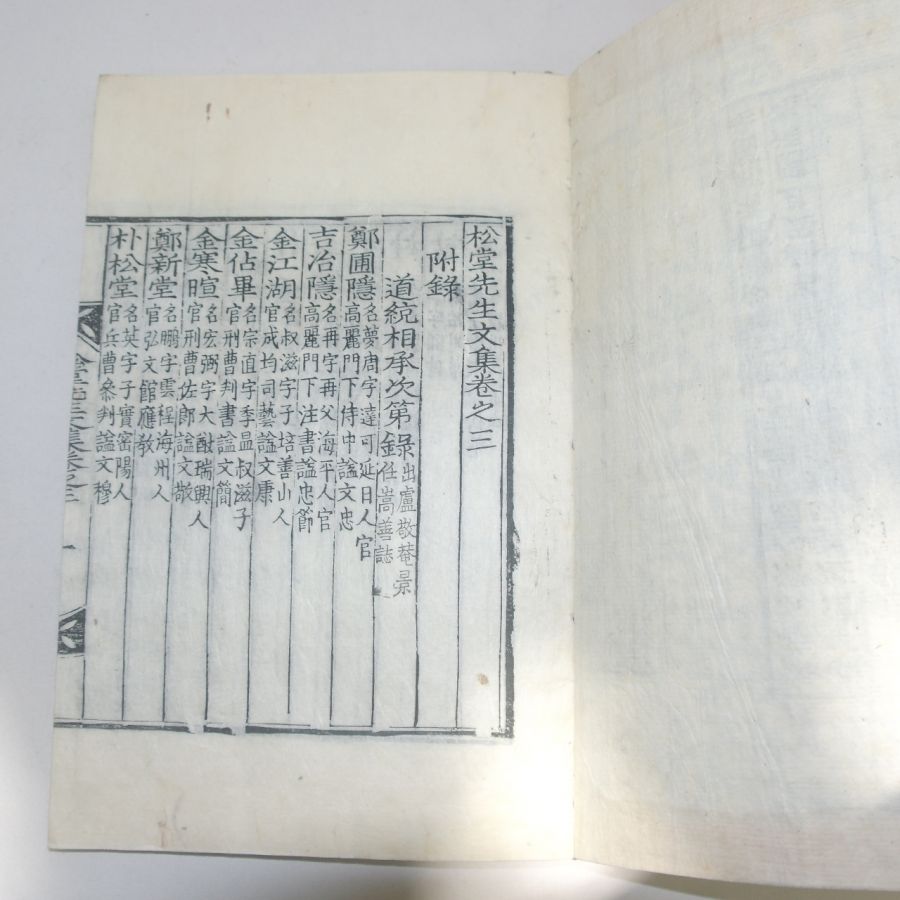 松堂先生文集卷之三
附錄
道統相承次第錄出盧敬菴景任嵩善誌
鄭圃隱名夢周字達可延日人官高麗門下侍中謚文忠
吉冶隱名再字再父海平人官高麗門下注書謚忠節
金江湖名叔滋字子培善山人官成均司藝謚文康
金佔畢名宗直字季昷叔滋子官刑曹判書謚文簡
金寒暄名宏弼字大猷瑞興人官刑曹佐郞謚文敬
鄭新堂名鵬字雲程海州人官弘文館應敎
朴松堂名英字子實密陽人官兵曹參判謚文穆
文集卷之三
一